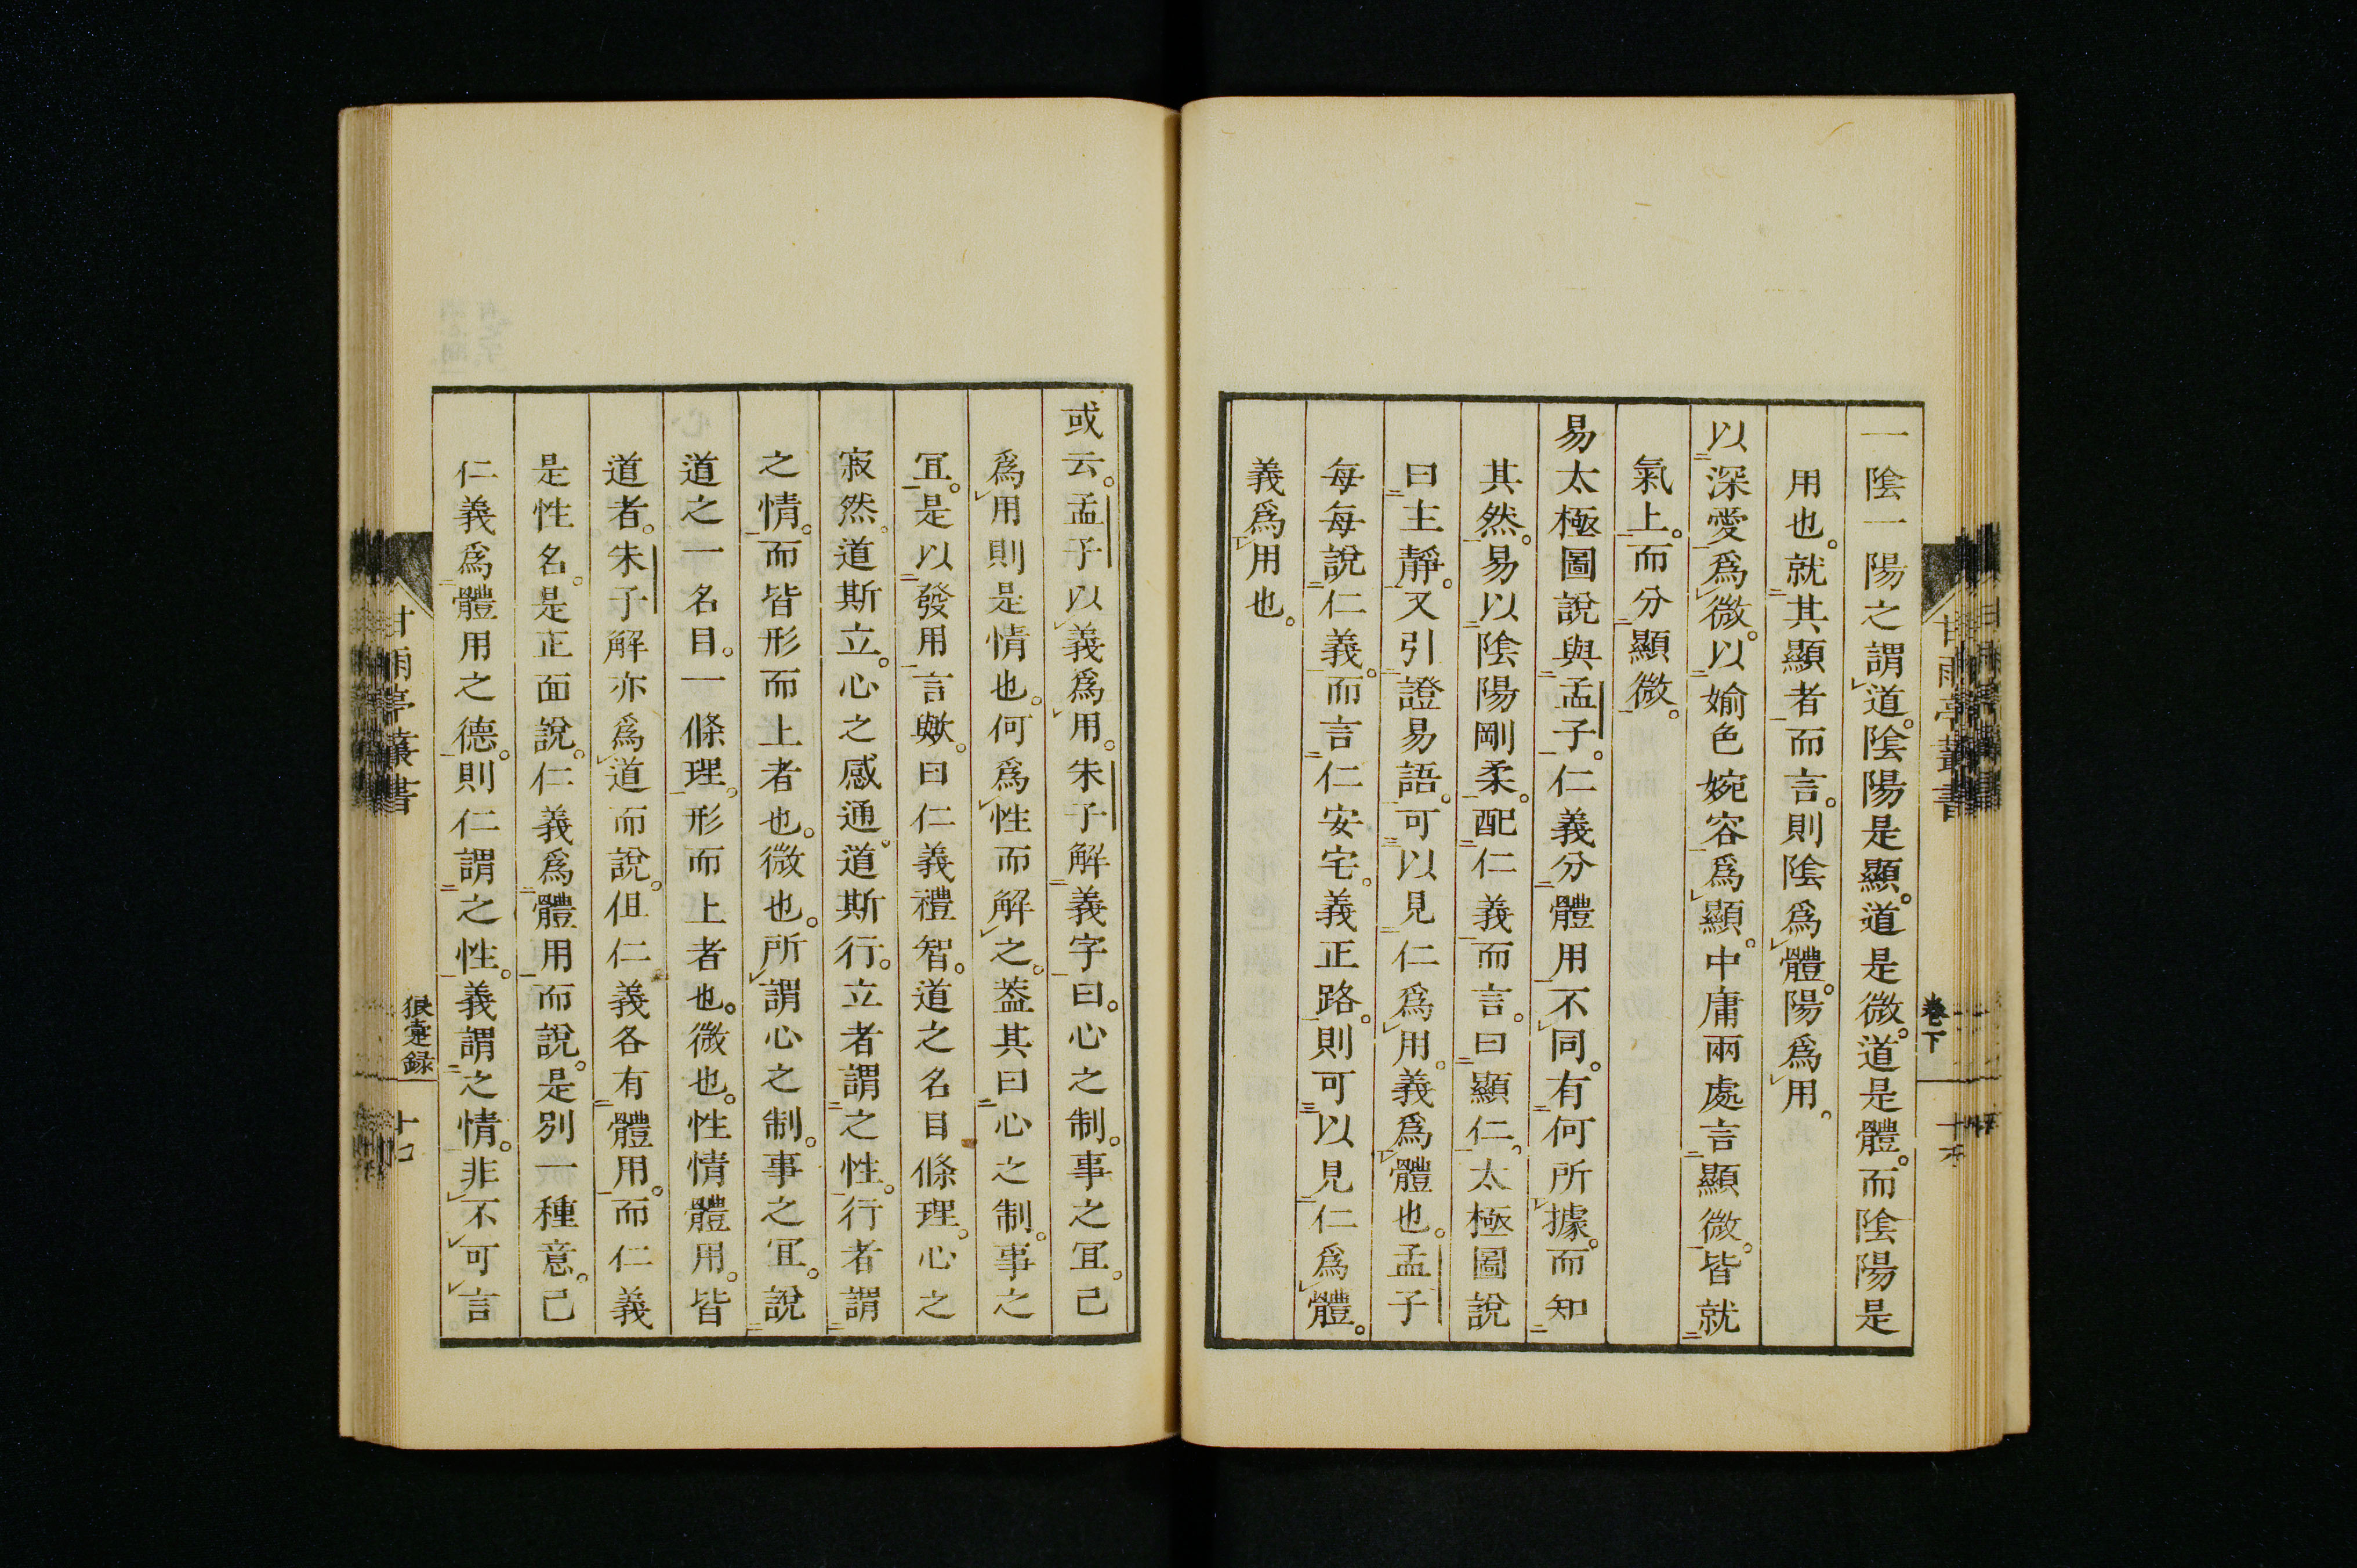 一陰一陽之謂道。陰陽是顯。道是微。道是體。而陰陽是
用也。就其顯者而言。則陰爲體。陽爲用。
以深愛爲微。以婾色婉容爲顯。中庸兩處言顯微。皆就
氣上。而分顯微。
易太極圖說與孟子。仁義分體用不同。有何所據。而知
其然。易以陰陽剛柔。配仁義而言。曰顯仁。太極圖說
曰主靜。又引證易語。可以見仁爲用。義爲體也。孟子
每每說仁義。而言仁安宅。義正路。則可以見仁爲體。
義爲用也。
甘雨亭叢書
卷下
十六
或云。孟子以義爲用。朱子解義字曰。心之制。事之冝。已
爲用則是情也。何爲性而解之。葢其曰心之制。事之
冝。是以發用言歟。曰仁義禮智。道之名目條理。心之
寂然。道斯立。心之感通。道斯行。立者謂之性。行者謂
之情。而皆形而上者也。微也。所謂心之制。事之冝。說
道之一名目。一條理。形而上者也。微也。性情體用。皆
道者。朱子解亦爲道而說。但仁義各有體用。而仁義
是性名。是正面說。仁義爲體用而說。是別一種意。已
仁義爲體用之德。則仁謂之性。義謂之情。非不可言
甘雨亭叢書
狼疐録
十七